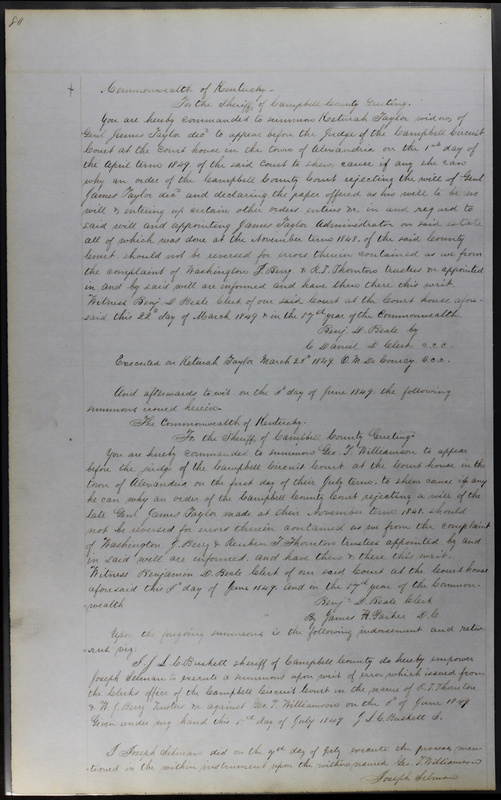 80
Commonwealth of Kentucky
To the Sheriff of Campbell County Greeting.
You are hereby commanded to summon Keturah Taylor widow of
Genl James Taylor decd to appear before the Judge of the Campbell Circuit
Court at the Court house in the town of Alexandria on the 1st day of
the April term 1849. of the said Court to shew cause if any she can
why an order of the Campbell County Court rejecting the will of Genl
James Taylor decd and declaring the paper offered as his will to be no
will & entering up certain other orders. enters &c in and regard to
said will and appointing James Taylor Administrator on said estate
all of which was done at the November term 1848. of the said County
Court should not be reversed for errors therein contained as we from
the complaint of Washington J. Berry & R. T. Thornton trustees &c appointed
in and by said will are informed and have then there this writ.
Witness Benj. D. Beale Clerk of our said Court at the Court house afore-
said this 22d day of March 1849 & in the 57th year of the Commonwealth
Benj. D. Beale by
C Daniel D Clerk c.c.c.
Executed on Keturah Taylor March 1849. De Courcy
And afterwards to wit. on the day of June 1849. the following
summons issued herein
The Commonwealth of Kentucky.
To the Sheriff of Campbell County Greeting
You are hereby commanded to summons Geo. T. Williamson to appear
before the judge of the Campbell Circuit Court at the Court house in the
town of Alexandria on the first day of their July term. to shew cause if any
he can why an order of the Campbell County Court rejecting a will of the
late Genl James Taylor made at their November term 1848. should
not be reversed for errors therein contained as we from the complaint
of Washington J. Berry & Reuben T Thornton trustees appointed by and
in said will are informed. and have then & there this writ.
Witness Benjamin D. Beale Clerk of our said Court at the Court house
aforesaid this day of June 1849. and in the 57th year of the Common-
wealth
Benj. D. Beale Clerk
By James H. Parker D.C.
Upon the forgoing summons is the following indorsement and retur
viz:
I J. L. C. Buskett sheriff of Campbell County do hereby empower
Joseph Selman to execute a summons upon writ of error which issued from
the Clerks office of the Campbell Circuit Court in the name of R. T. Thornton
& W. J. Berry Trustees &c against Geo. T. Williamson on the of June 1849
Given under my hand this day of July 1849 J L C Buskett S.
I Joseph Selman did on the 9th day of July execute the process men-
tioned in the within instrument upon the within named Geo. T. Williamson
Joseph Selman